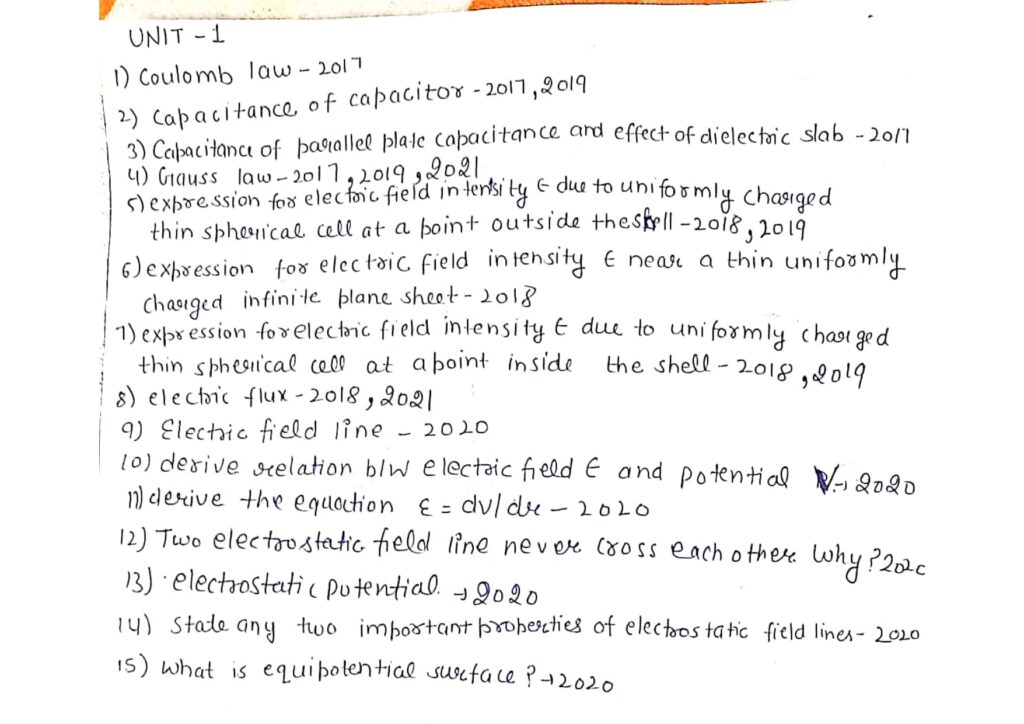 UNIT - 1
1) Coulomb law - 2017
2) Capacitance of capacitor - 2017, 2019
3) Capacitance of parallel plate capacitance and effect of dielectric slab - 2017
4) Gauss law - 2017, 2019, 2021
5) expression for electric field intensity E due to uniformly charged
thin spherical cell at a point outside the shell - 2018, 2019
6) expression for electric field intensity E near a thin uniformly
charged infinite plane sheet - 2018
7) expression for electric field intensity E due to uniformly charged
thin spherical cell at a point inside the shell - 2018, 2019
8) electric flux - 2018, 2021
9) Electric field line - 2020
10) derive relation b/w electric field E and potential V → 2020
11) derive the equaction E = dv/dr - 2020
12) Two electrostatic field line never cross each other why? 2020
13) electrostatic potential. → 2020
14) State any two important properties of electrostatic field lines - 2020
15) what is equipotential surface? → 2020